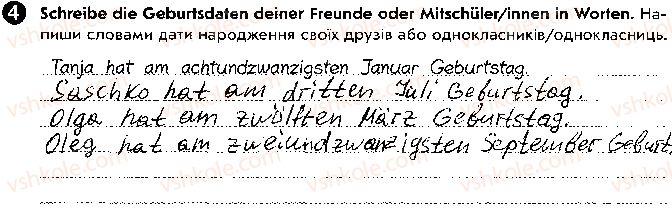 4 Schreibe die Geburtsdaten deiner Freunde oder Mitschüler/innen in Worten. На-
пиши словами дати народження своїх друзів або однокласників/однокласниць.
Tanja hat am achtundzwanzigsten Januar Geburtstag.
Saschko hat am dritten Juli Geburtstag.
Olga hat am zwölften März Geburtstag.
Oleg hat am zweiundzwanzigsten September Geburt,